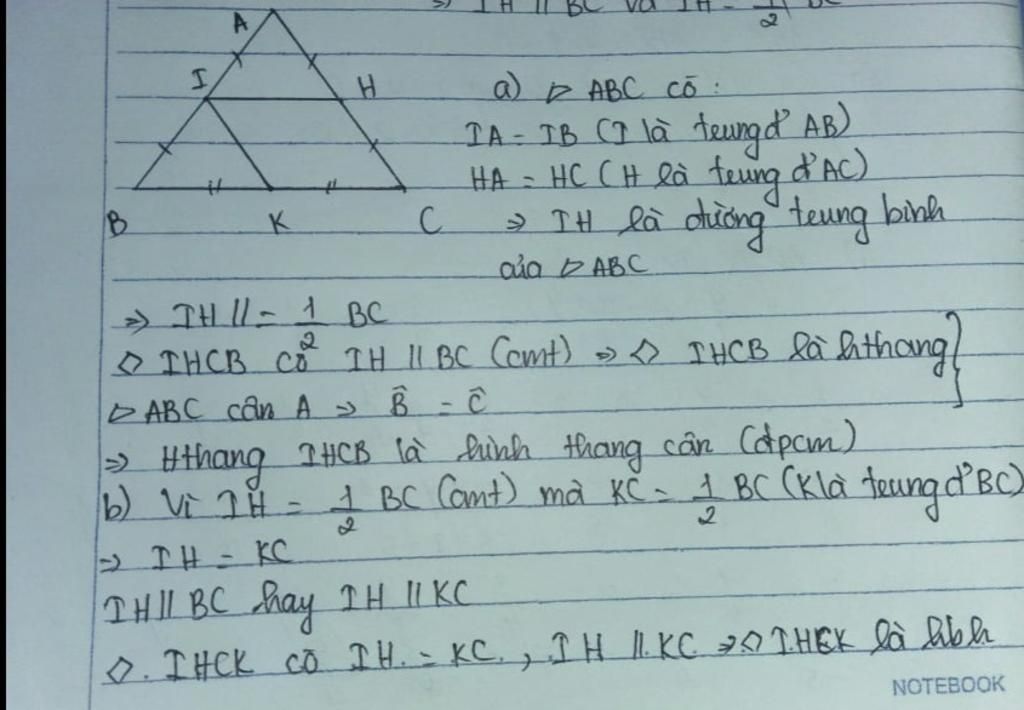 ⇒ IH // BC và IH = 1/2 BC
A
I
H
B
K
C
a) ▷ ABC có :
IA = IB (I là trung đ' AB)
HA = HC (H là trung đ' AC)
⇒ IH là đường trung bình
của ▷ ABC
⇒ IH // = 1/2 BC
◇ IHCB có IH // BC (cmt) ⇒ ◇ IHCB là hthang }
▷ ABC cân A ⇒ B̂ = Ĉ
⇒ Hthang IHCB là hình thang cân (đpcm)
b) Vì IH = 1/2 BC (cmt) mà KC = 1/2 BC (K là trung đ' BC)
⇒ IH = KC
IH // BC hay IH // KC
◇. IHCK có IH = KC, IH // KC ⇒ ◇ IHCK là hbh
NOTEBOOK